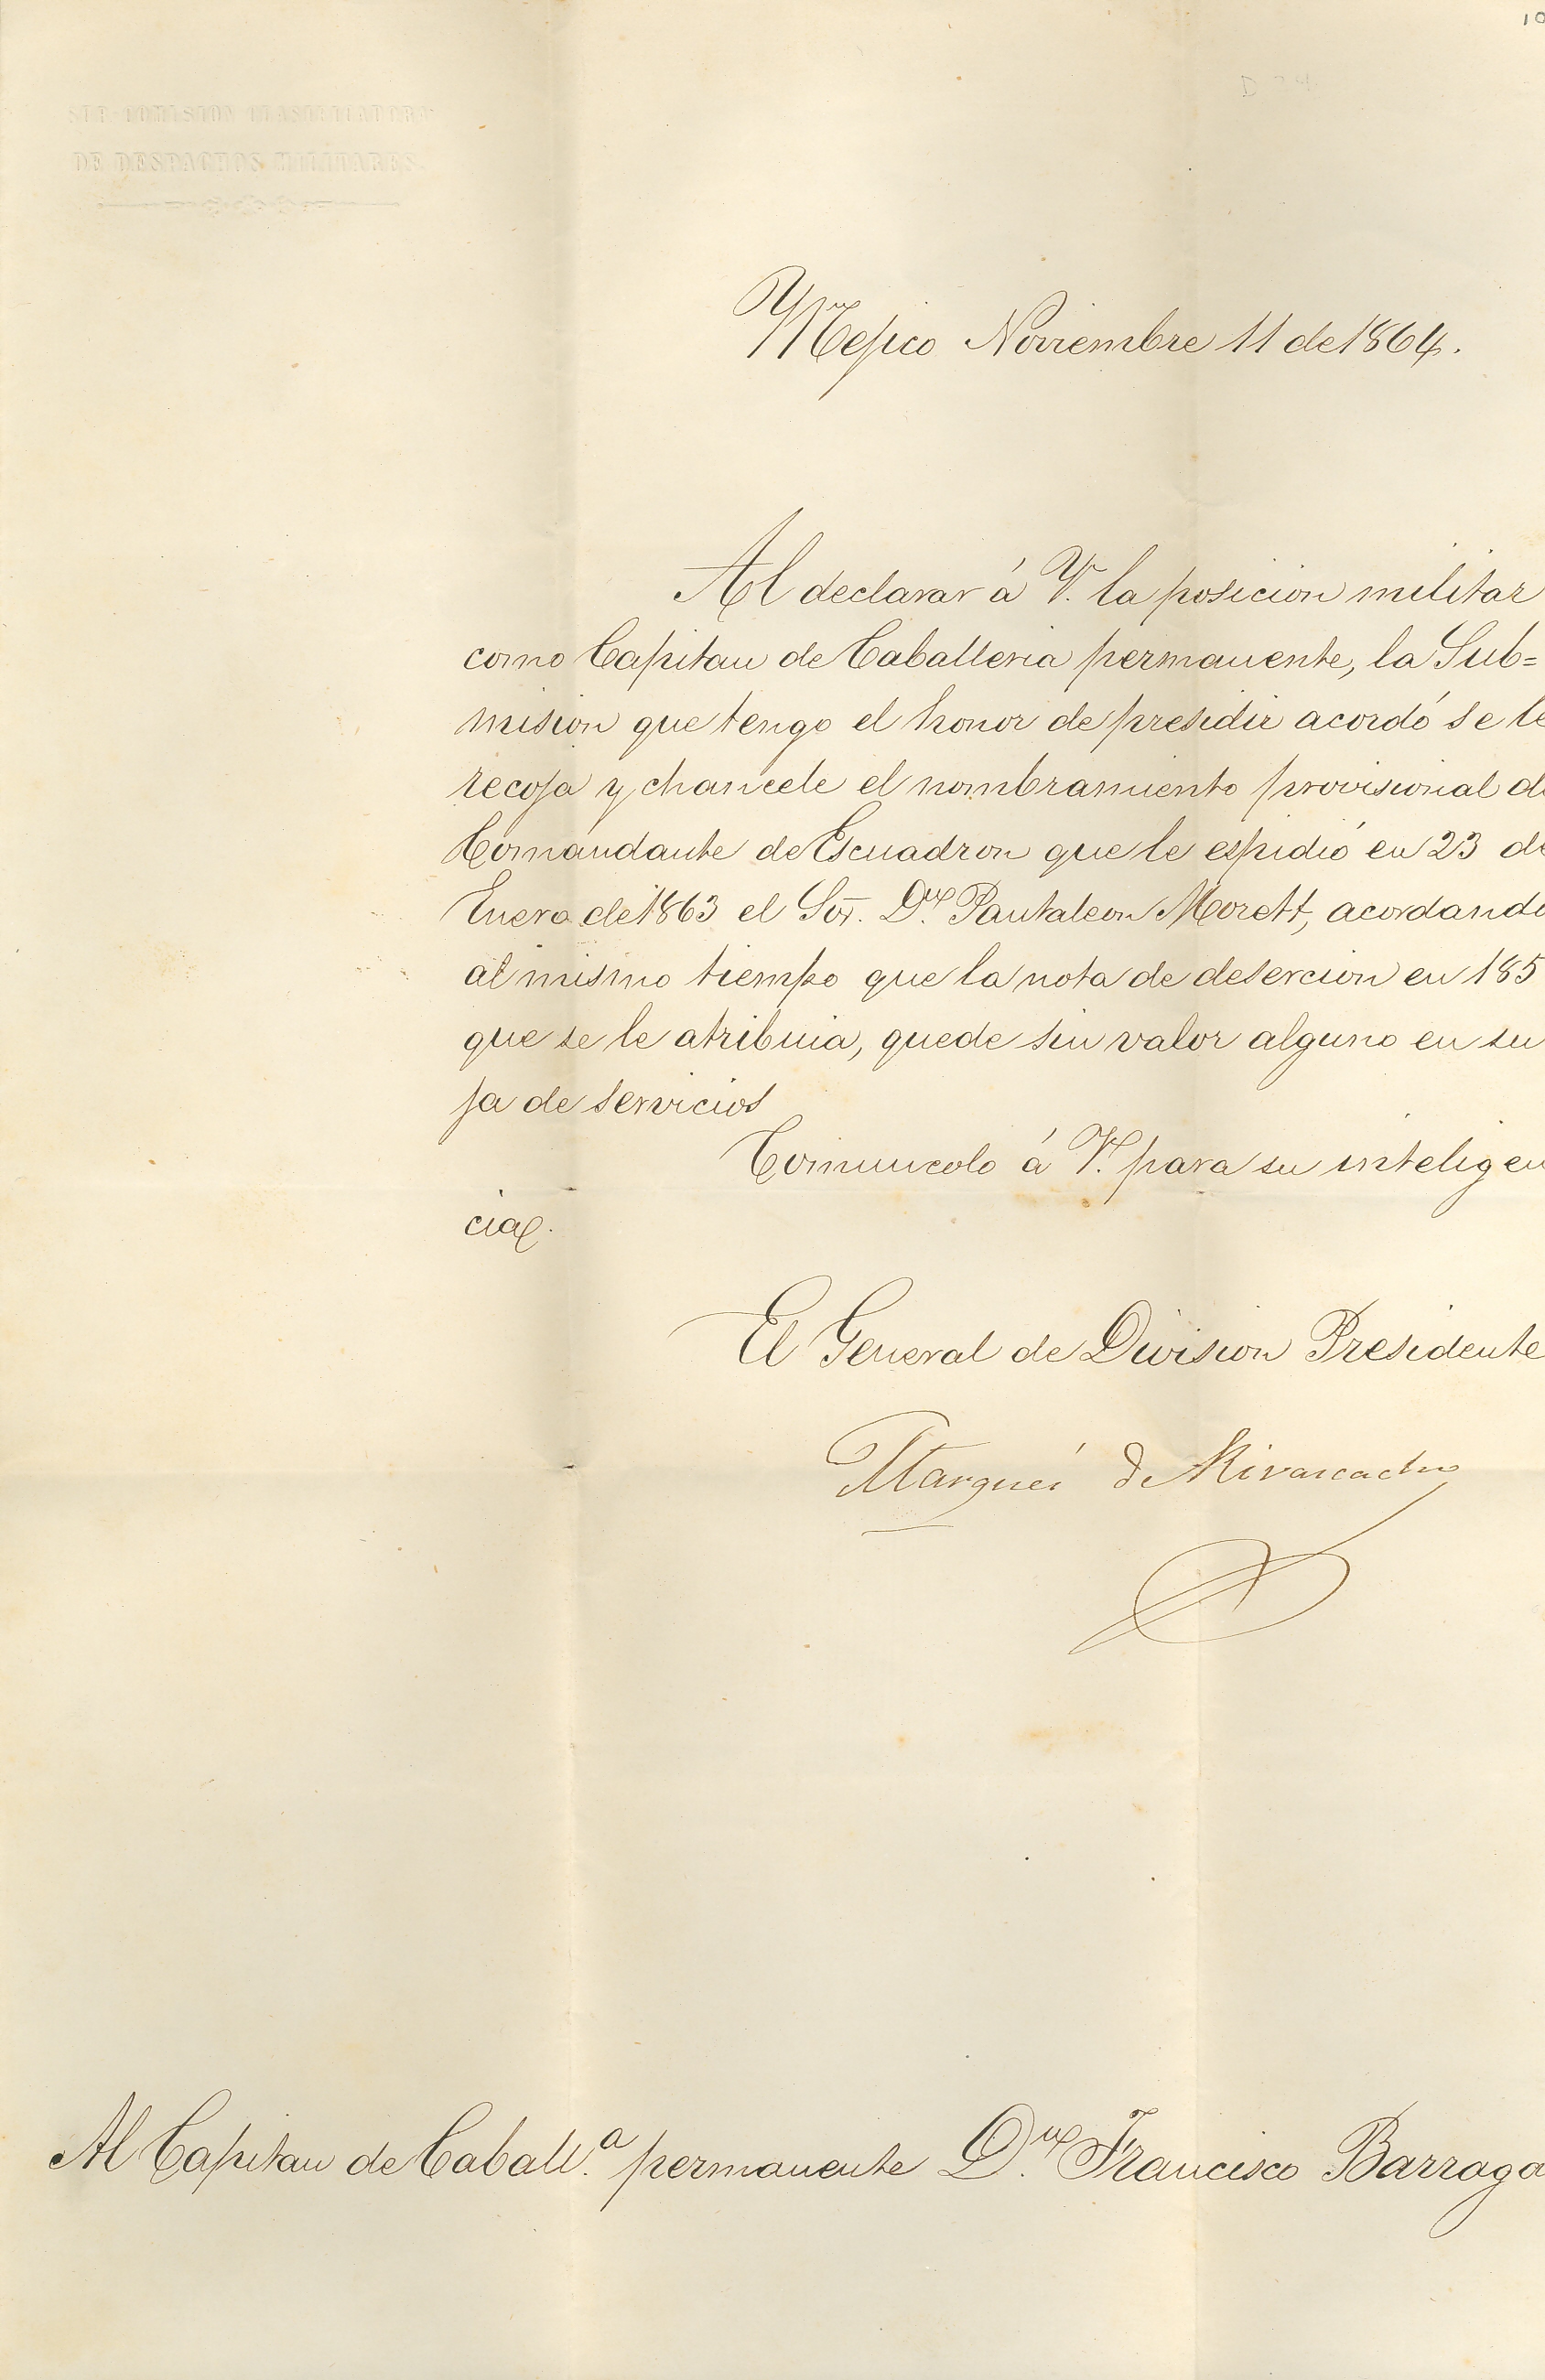 10
D 74
SUB-COMISION CLASIFICADORA
DE DESPACHOS MILITARES.
Mejico Noviembre 11 de 1864.
Al declarar á V. la posicion militar
como Capitan de Caballeria permanente, la Sub=
mision que tengo el honor de presidir acordó se le
recoja y chancele el nombramiento provisional de
Comandante de Escuadron que le espidió en 23 de
Enero de 1863 el Sor. Dn. Pantaleon Morett, acordando
al mismo tiempo que la nota de desercion en 185
que se le atribuia, quede sin valor alguno en su
ja de servicios
Comunicolo á V. para su inteligen
cia.
El General de Division Presidente
Marqués de Vivanco
Al Capitan de Caball.a permanente Dn. Francisco Barraga